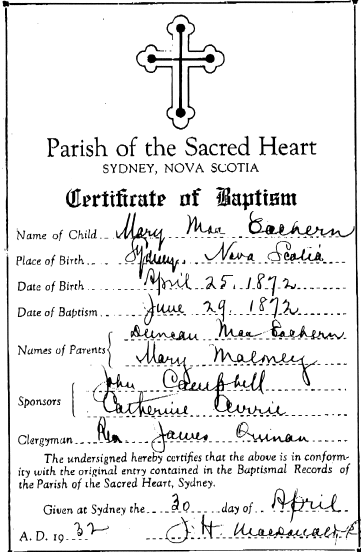 Parish of the Sacred Heart
SYDNEY, NOVA SCOTIA
Certificate of Baptism
Name of Child Mary Mac Eachern
Place of Birth Sydney, Nova Scotia
Date of Birth April 25, 1872
Date of Baptism June 29, 1872
Names of Parents Duncan Mac Eachern
Mary Maloney
Sponsors John Campbell
Catherine Currie
Clergyman Rev James Quinan
The undersigned hereby certifies that the above is in conform-
ity with the original entry contained in the Baptismal Records of
the Parish of the Sacred Heart, Sydney.
Given at Sydney the 30 day of April
A. D. 19 32 J. H. Macdonald